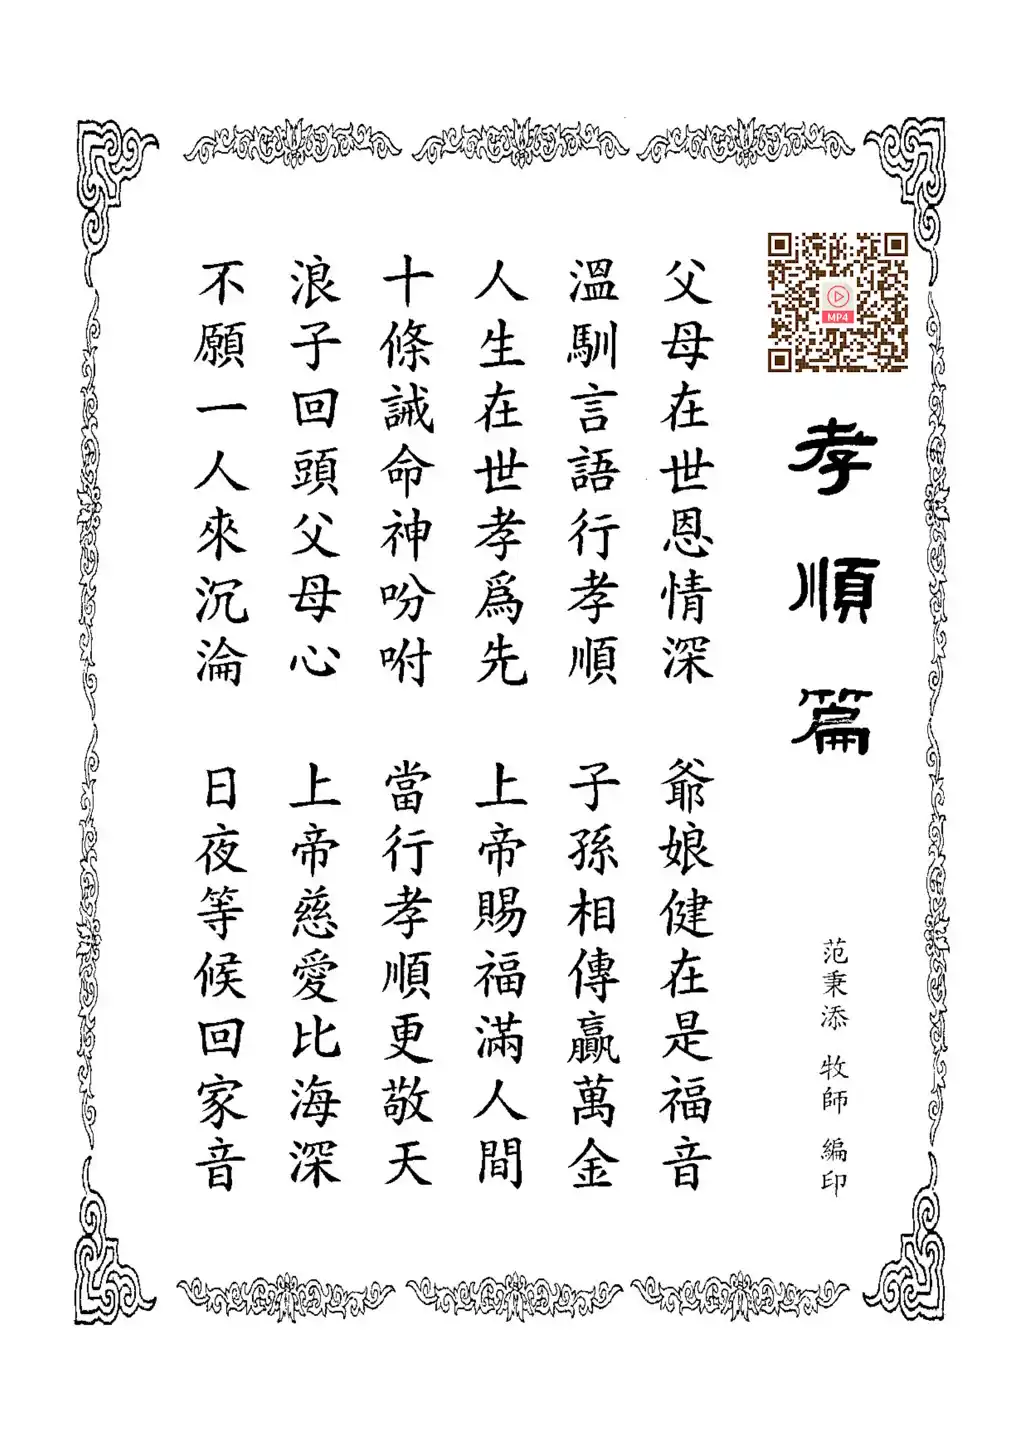 孝順篇
范秉添 牧師 編印
MP4
父母在世恩情深 爺娘健在是福音
溫馴言語行孝順 子孫相傳贏萬金
人生在世孝爲先 上帝賜福滿人間
十條誡命神吩咐 當行孝順更敬天
浪子回頭父母心 上帝慈愛比海深
不願一人來沉淪 日夜等候回家音